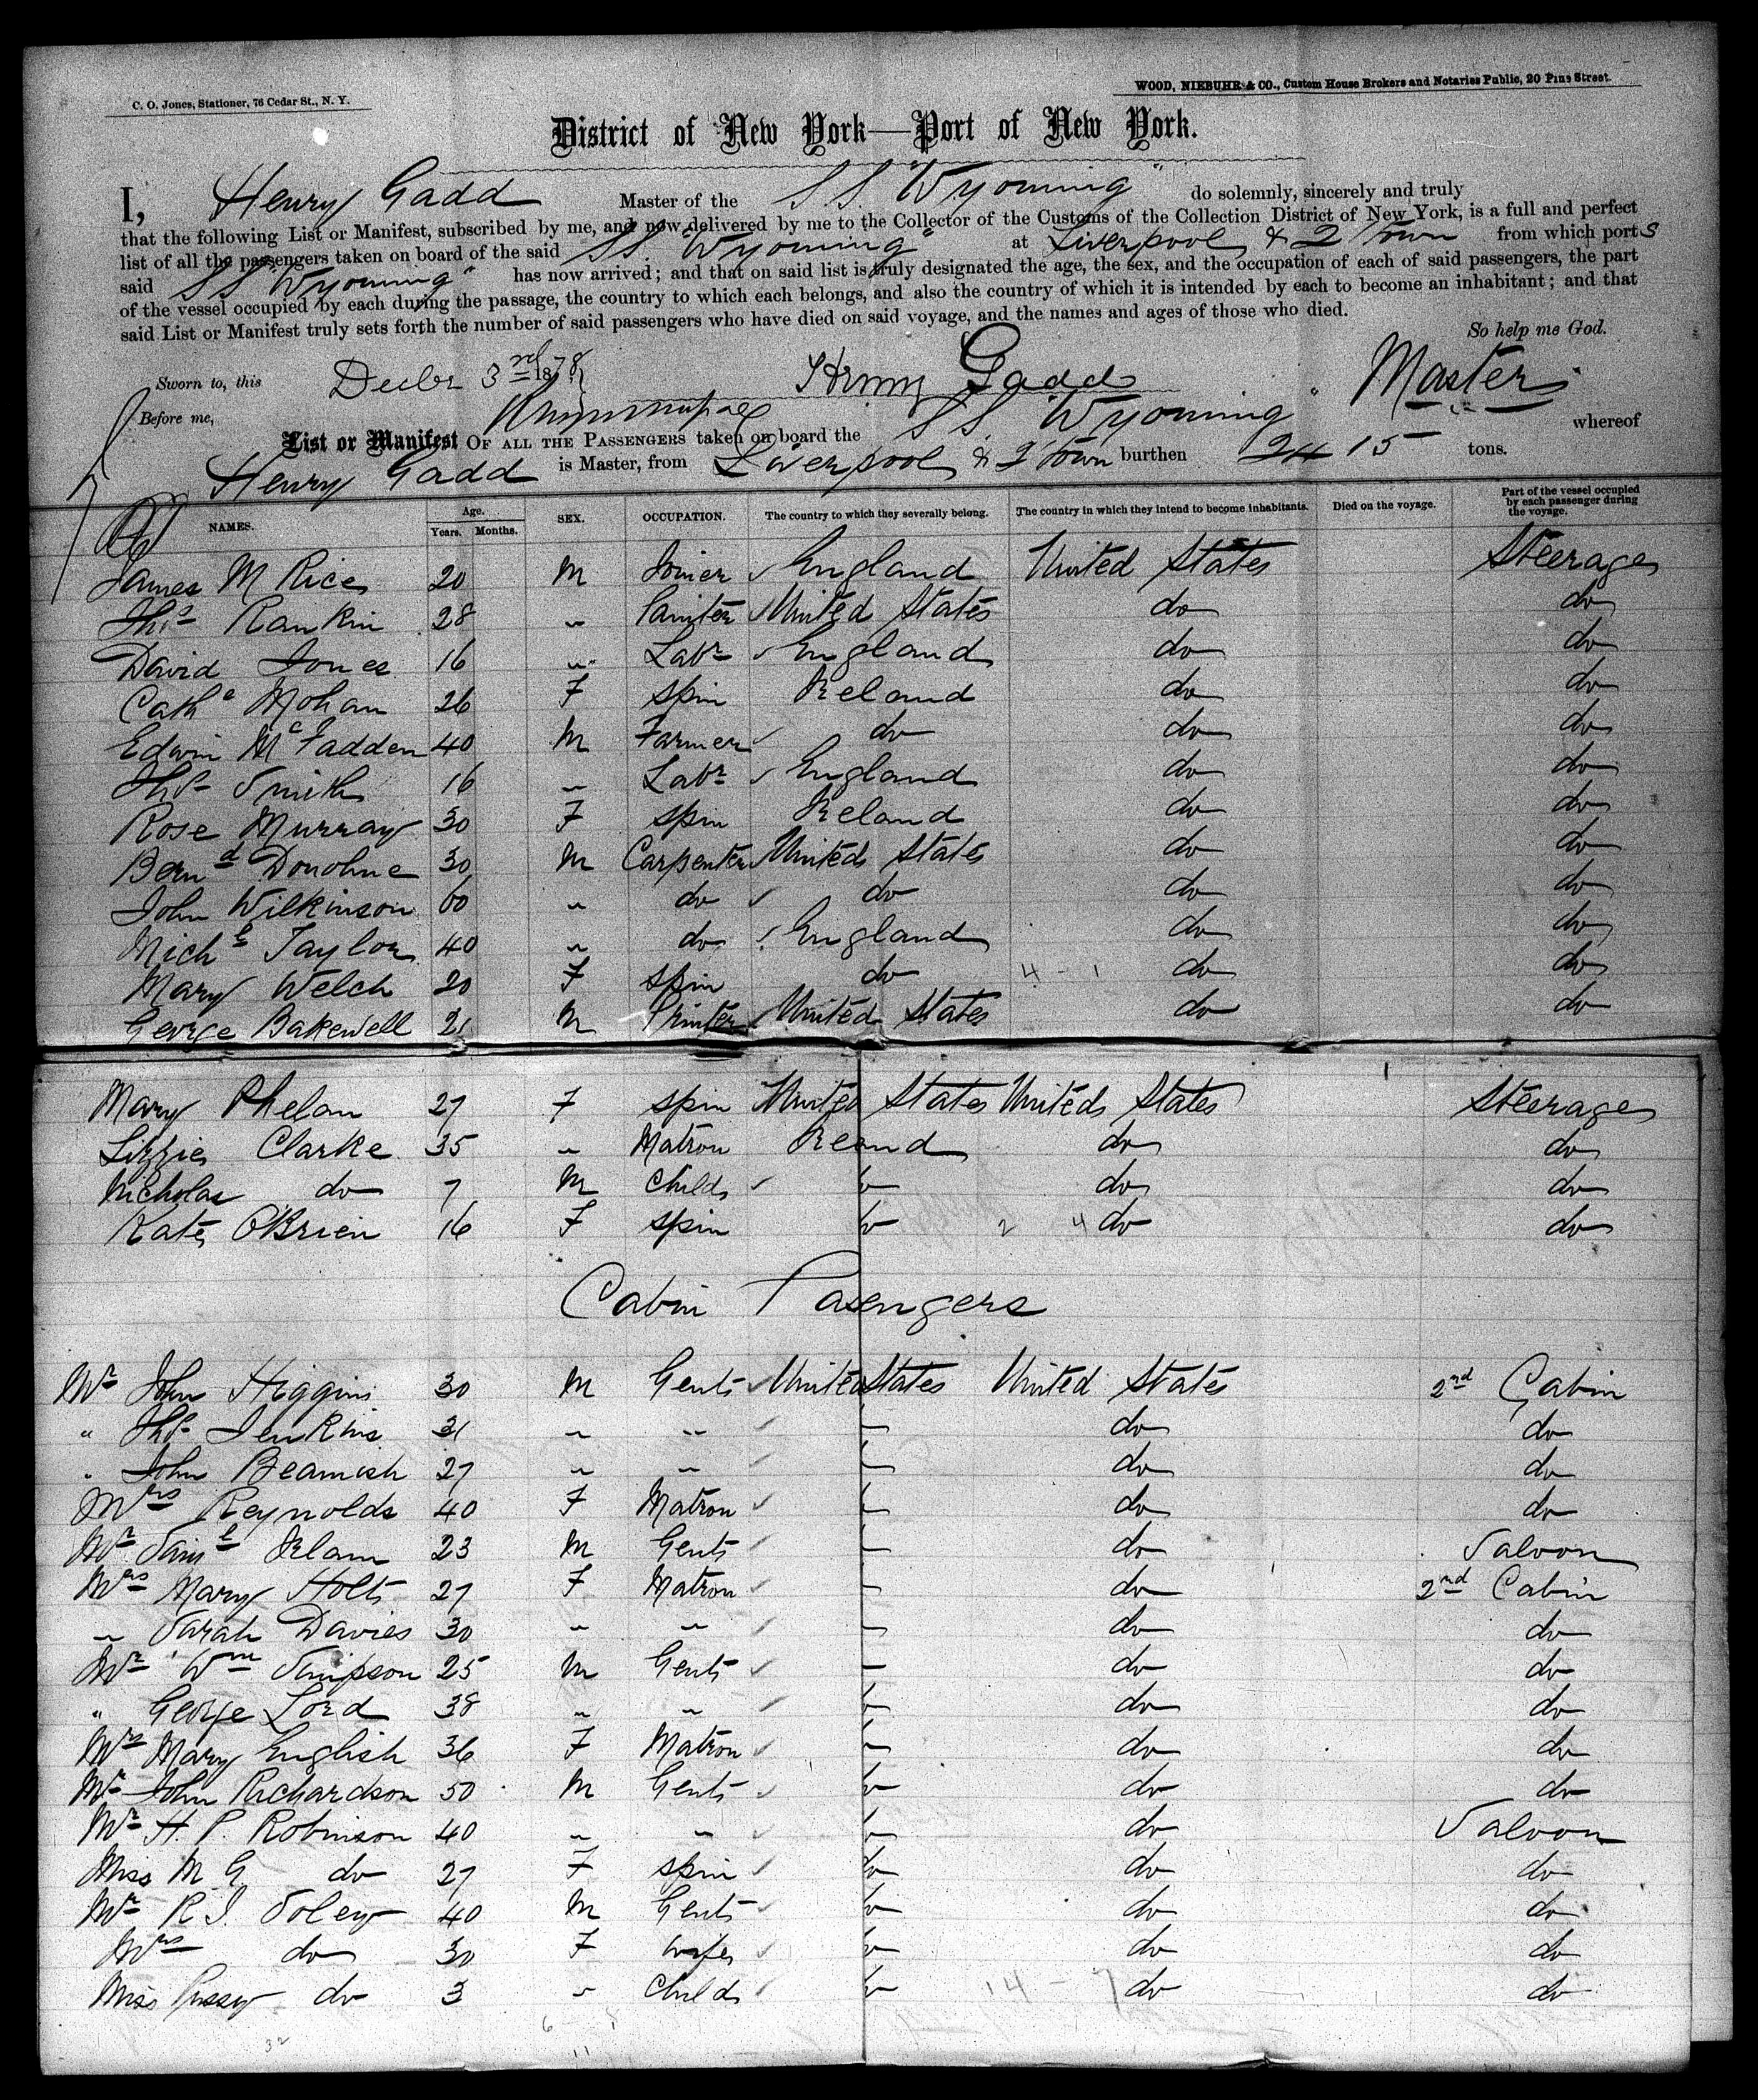 C. O. Jones, Stationer, 76 Cedar St., N. Y.
WOOD, NIEBUHR & CO., Custom House Brokers and Notaries Public, 20 Pine Street.
District of New York—Port of New York.
I, Henry Gadd Master of the SS. "Wyoming" do solemnly, sincerely and truly
that the following List or Manifest, subscribed by me, and now delivered by me to the Collector of the Customs of the Collection District of New York, is a full and perfect
list of all the passengers taken on board of the said SS. "Wyoming" at Liverpool & Q Town from which ports
said SS "Wyoming" has now arrived; and that on said list is truly designated the age, the sex, and the occupation of each of said passengers, the part
of the vessel occupied by each during the passage, the country to which each belongs, and also the country of which it is intended by each to become an inhabitant; and that
said List or Manifest truly sets forth the number of said passengers who have died on said voyage, and the names and ages of those who died.
So help me God.
Sworn to, this Decbr 3rd 1878 Henry Gadd Master
Before me,
List or Manifest OF ALL THE PASSENGERS taken on board the SS "Wyoming" whereof
Henry Gadd is Master, from Liverpool & Q Town burthen 2415 tons.
NAMES. Age. Years. Months. SEX. OCCUPATION. The country to which they severally belong. The country in which they intend to become inhabitants. Died on the voyage. Part of the vessel occupied by each passenger during the voyage.
James M Rice 20 M Joiner England United States Steerage
Thos Rankin 28 " Painter United States do do
David Jones 16 " Labr England do do
Cathe Mohan 26 F Spin Ireland do do
Edwin McFadden 40 M Farmer do do do
Thos Smith 16 " Labr England do do
Rose Murray 30 F Spin Ireland do do
Bernd Donohue 30 M Carpenter United States do do
John Wilkinson 60 " do do do do
Michl Taylor 40 " do England do do
Mary Welch 20 F Spin do 4 - 1 do do
George Bakewell 21 M Printer United States do do
Mary Phelan 27 F Spin United States United States Steerage
Lizzie Clarke 35 " Matron Ireand do do
Nicholas do 7 M Child do do
Kate O'Brien 16 F Spin 2 4 do do
Cabin Pasengers
Mr John Higgins 30 M Gent United States United States 2nd Cabin
" Thos Jenkins 31 " " do do
" John Beamish 27 " " do do
Mrs Reynolds 40 F Matron do do
Mr Saml 23 M Gent do Saloon
Mrs Mary Holt 27 F Matron do 2nd Cabin
" Sarah Davies 30 " " do do
Mr Wm Simpson 25 M Gent do do
" George Lord 38 " " do do
Mrs Mary English 36 F Matron do do
Mr John Richardson 50 M Gent do do
Mr H. P. Robinson 40 " " do Saloon
Miss M G do 27 F Spin do do do
Mr R J. Foley 40 M Gent do do
Mrs do 30 F Wife do do
Miss do 3 " Child 14 - do do
32 6
11